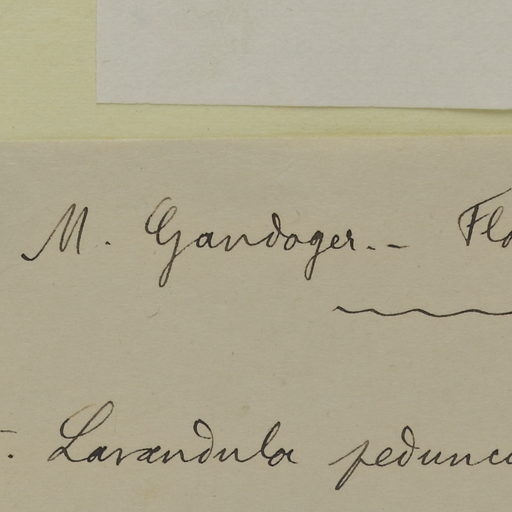 M. Gandoger. - Flo
. Lavandula pedunc